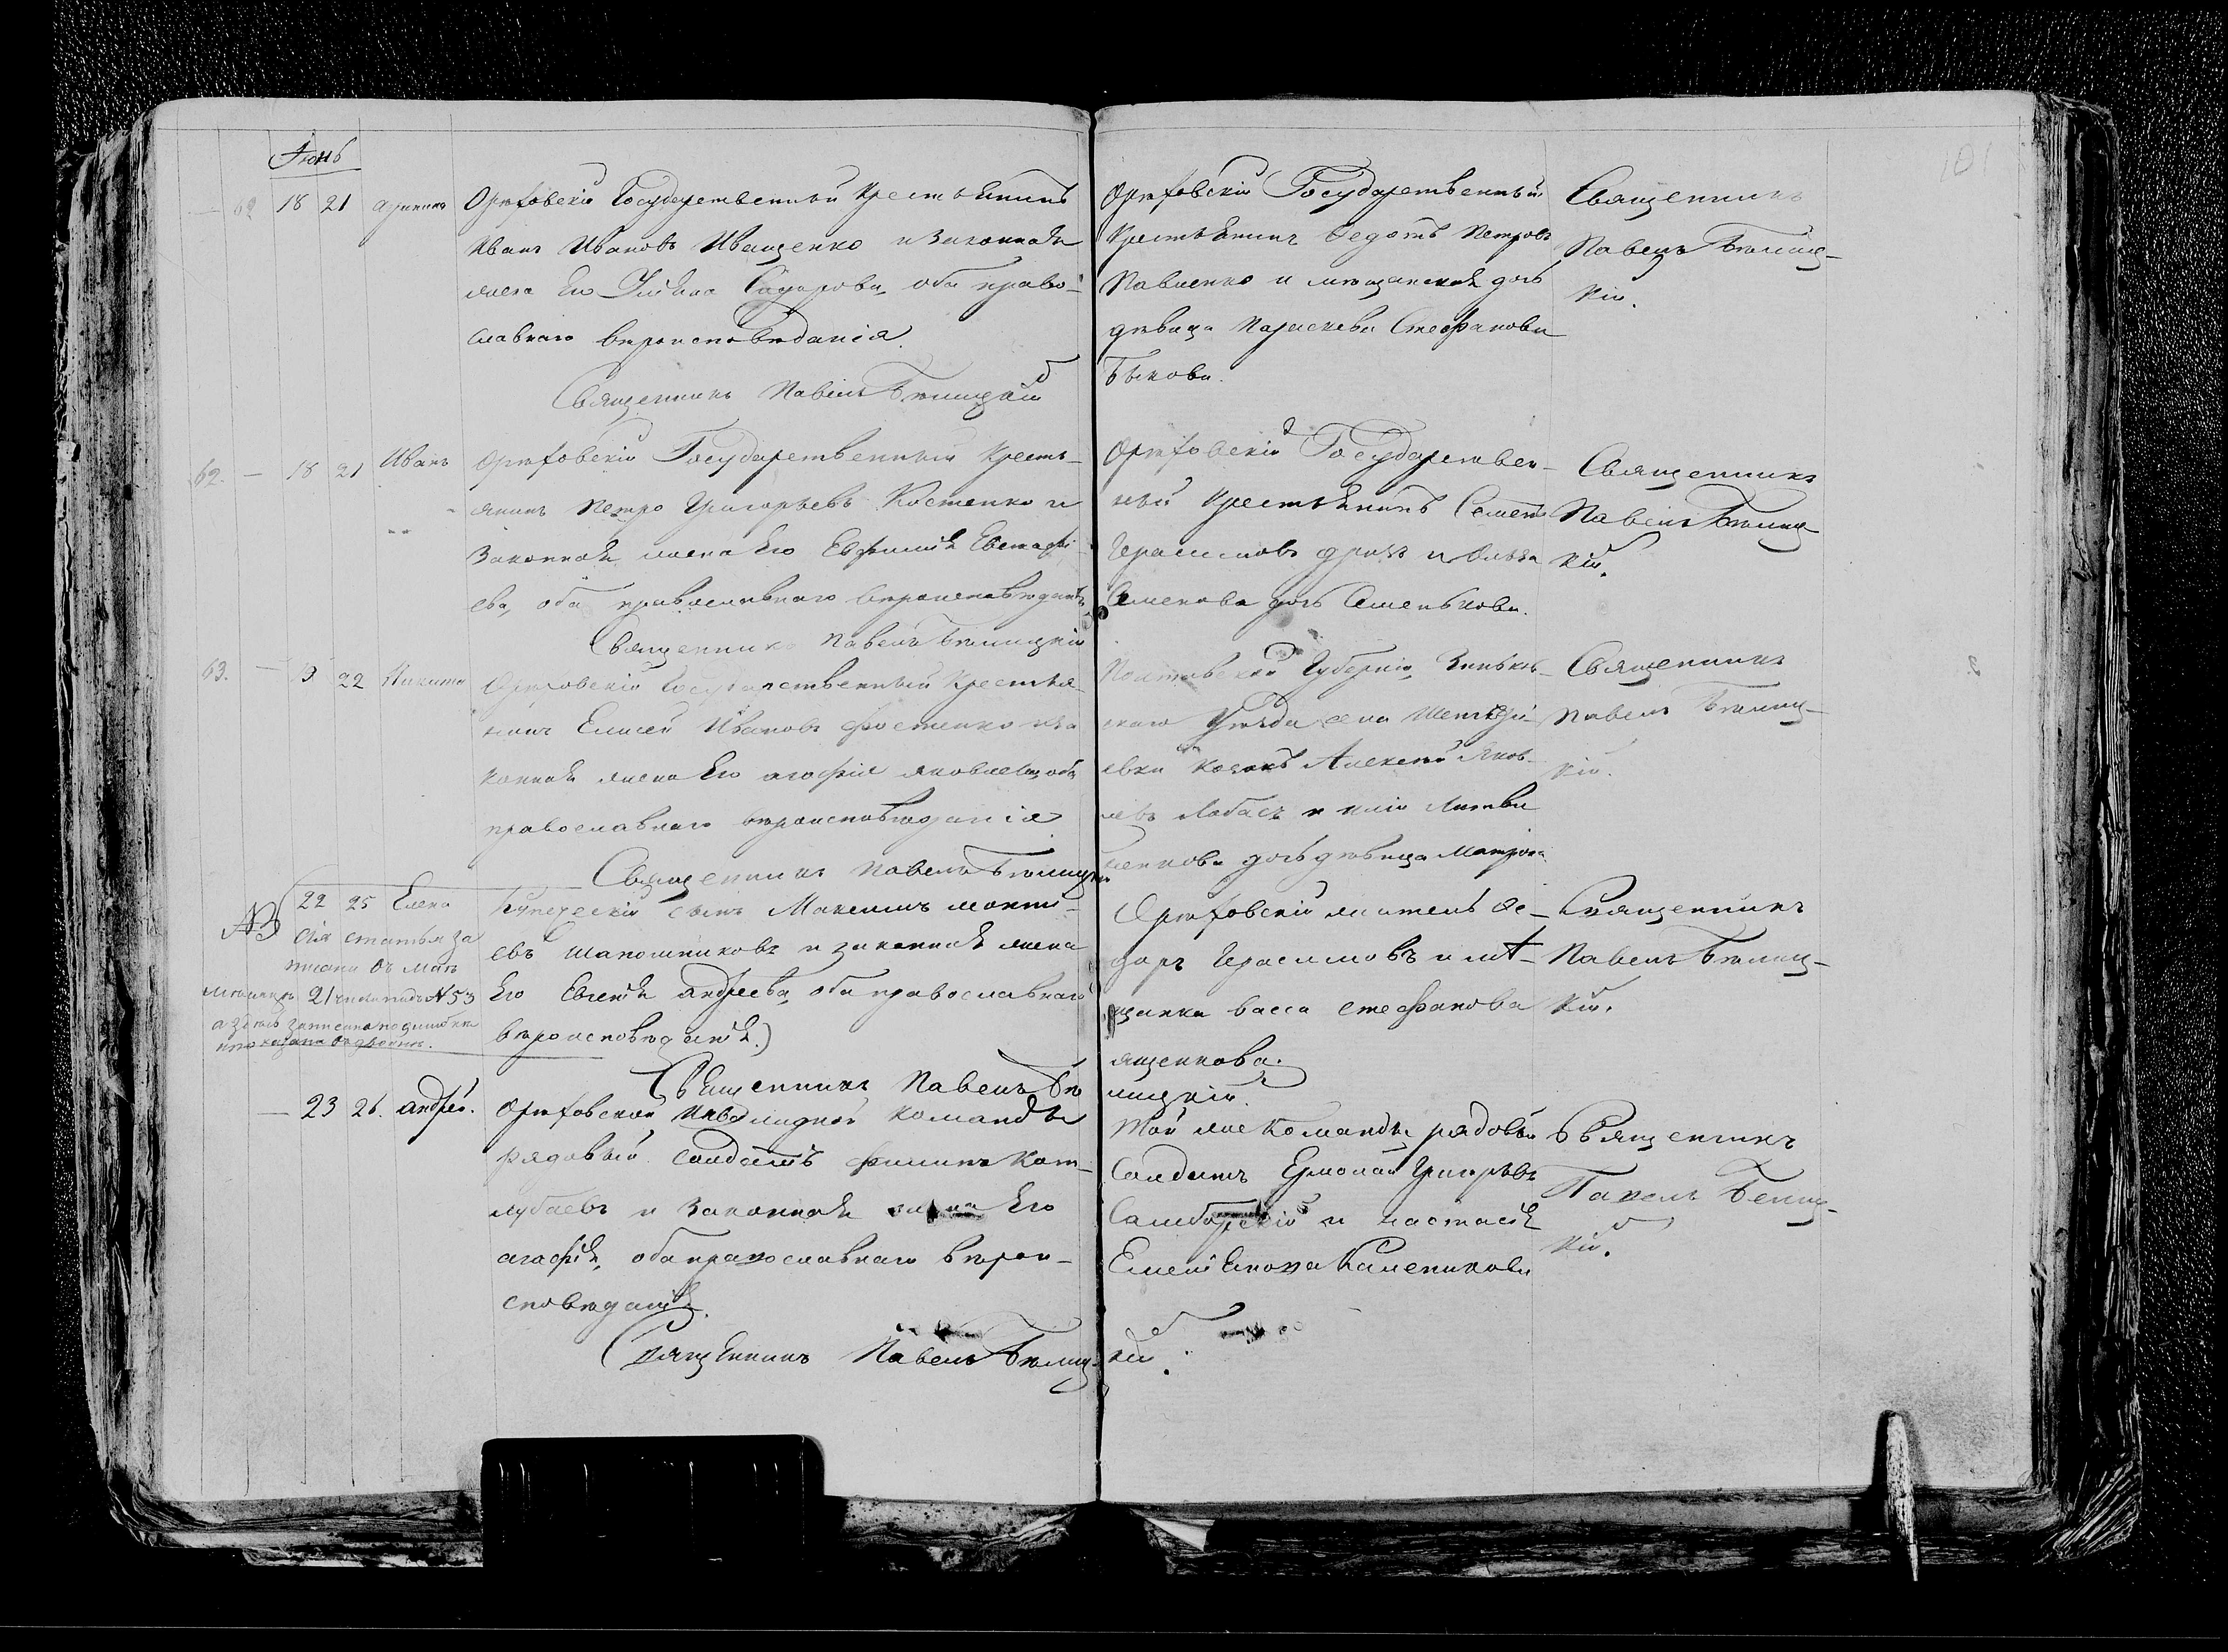 Іюнь
101
62 18 21
Орѣховскій Государственный Крестьянинъ
Иванъ Ивановъ Иващенко и законная
жена Его Ульяна Сидорова, оба право-
славнаго вѣроисповѣданія.
Священникъ Павелъ Бѣлицкій
Орѣховскій Государственный
Крестьянинъ Федотъ Петровъ
Павленко и мѣщанская дочь
дѣвица Параскева Стефанова
Быкова.
Священникъ
Павелъ Бѣлиц-
кій.
62. — 18 21 Иванъ
Орѣховскій Государственный Кресть-
янинъ Петро Григорьевъ Костенко и
Законная жена Его Евфимія Евстафі-
ева, оба православнаго вѣроисповѣданія
Священникъ Павелъ Бѣлицкій
Орѣховскій Государствен-
ный Крестьянинъ Семенъ
Герасимовъ и Ольга
Семенова дочь Семенькова.
Священникъ
Павелъ Бѣлиц-
кій.
63. — 19 22 Никита
Орѣховскій Государственный Крестья-
нинъ Елисей Ивановъ Фостенко и за
конная жена Его Агафія Яковлева, оба
православнаго вѣроисповѣданія
Священникъ Павелъ Бѣлицкій
Полтавской Губерніи, Зиньков-
скаго Уѣзда села
евки Козакъ Алексей Яков-
левъ Лобасъ и Литви
ненкова дочь дѣвица Матрона.
Священникъ
Павелъ Бѣлиц-
кій.
NB 22 25 Елена
Сія статья за
писана въ Маѣ
мѣсяцѣ 21 числа подъ №53
а здѣсь записана по ошибкѣ
Купеческій сынъ Максимъ
евъ Шапошниковъ и законная жена
Его Евгенія Андреева, оба православнаго
вѣроисповѣданія.)
Священникъ Павелъ Бѣ
лицкій.
Орѣховскій житель Фе-
доръ Герасимовъ и мѣ-
щанка Васса Стефанова
ященкова.
Священникъ
Павелъ Бѣлиц-
кій.
— 23 26. Андрей.
Орѣховской Инвалидной Команды
рядовый Солдатъ Филипъ Кот-
лубаевъ и Законная жена Его
Агафія, оба православнаго вѣрои-
сповѣданія.
Священникъ Павелъ Бѣлиц-
кій.
Той же Команды рядовый
Солдатъ Ермолай Григорьевъ
Самборскій и Настасія
Емельянова Каленикова
Священникъ
Павелъ Белиц-
кій.